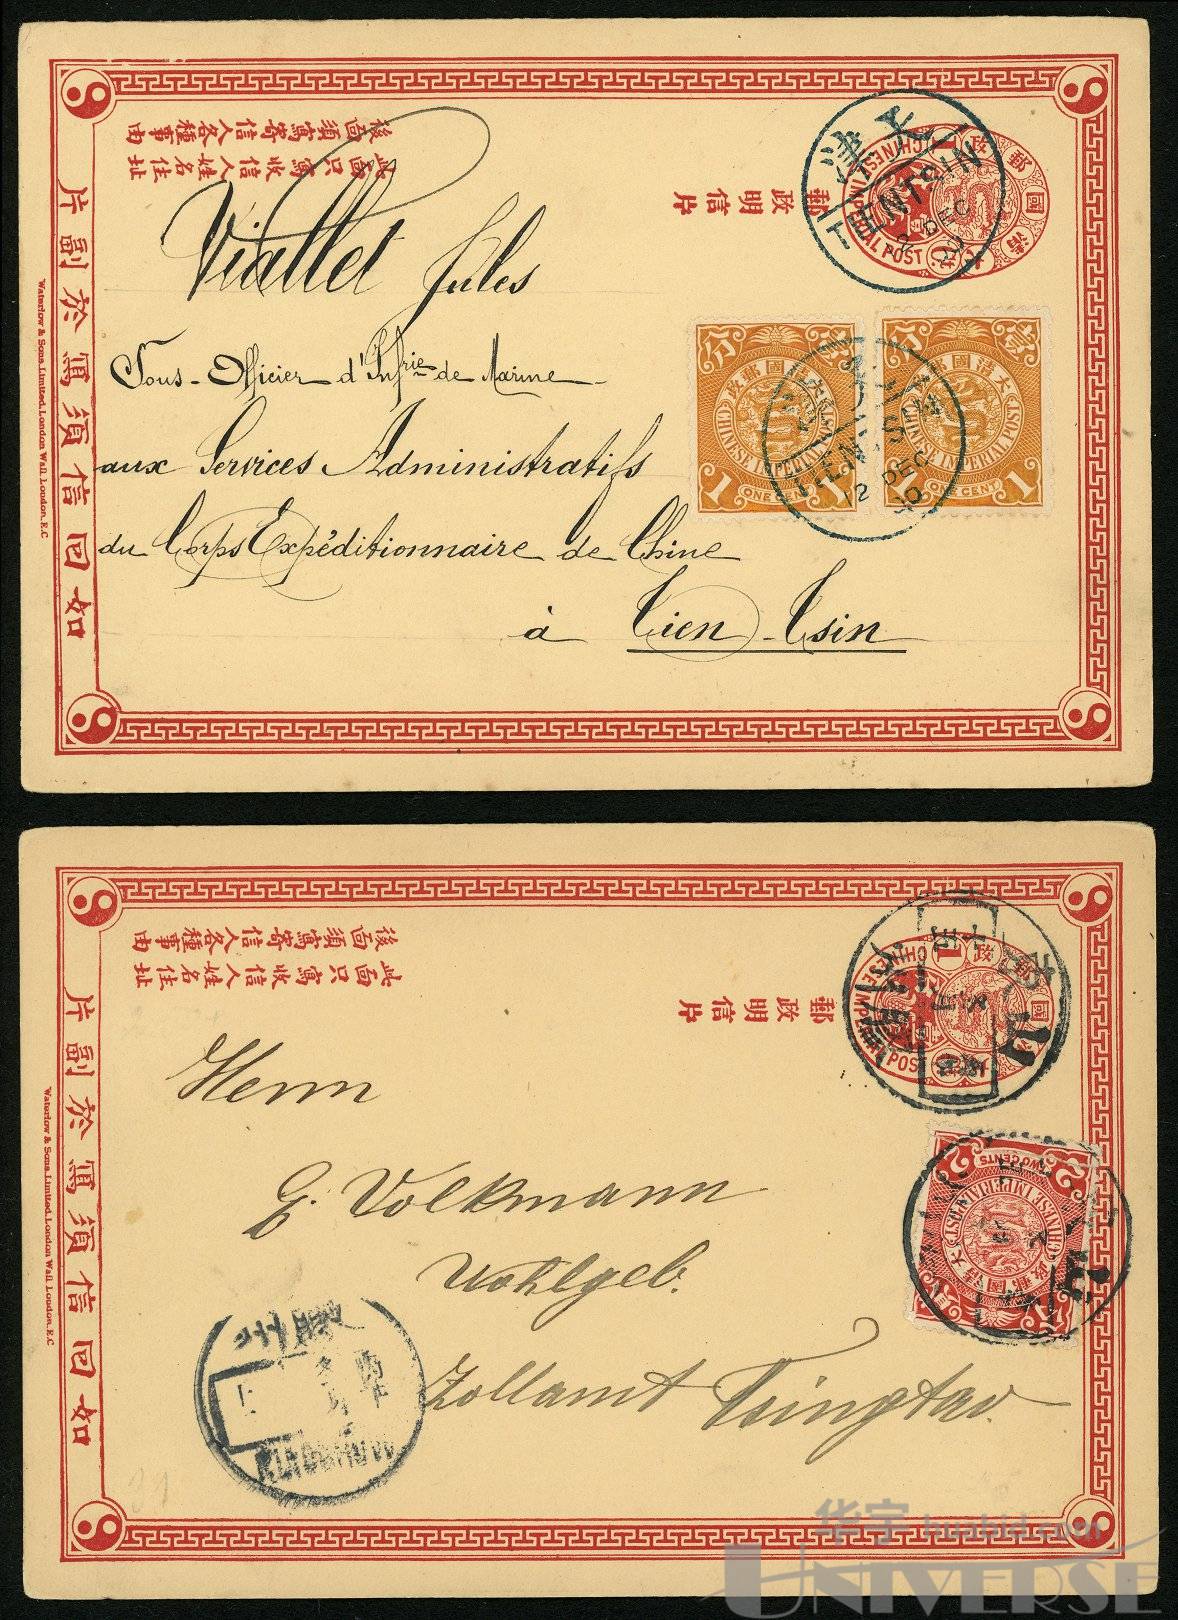 後面須寫寄信人各種事由
此面只寫收信人姓名住址
郵政明信片
如回信須寫於副片
Waterlow & Sons Limited, London Wall, London, E.C
大清國郵政
CHINESE IMPERIAL POST
1
天津
TIENTSIN
2 DEC
Viallet Jules
Sous-Officier d'Infrie de Marine
aux Services Administratifs
du Corps Expéditionnaire de Chine
à Tien-Tsin
大清國郵政
壹分
CHINESE IMPERIAL POST
1 ONE CENT 1
大清國郵政
壹分
CHINESE IMPERIAL POST
1 ONE CENT 1
TIENTSIN
12 DEC
後面須寫寄信人各種事由
此面只寫收信人姓名住址
郵政明信片
如回信須寫於副片
Waterlow & Sons Limited, London Wall, London, E.C
CHINESE IMPERIAL POST
1
Herrn
E. Volkmann
Wohlgeb.
Zollamt Tsingtau
大清國郵政
CHINESE IMPERIAL POST
2 TWO CENTS 2
膠州
KIAOCHOW
华宇 huabid.com
UNIVERSE